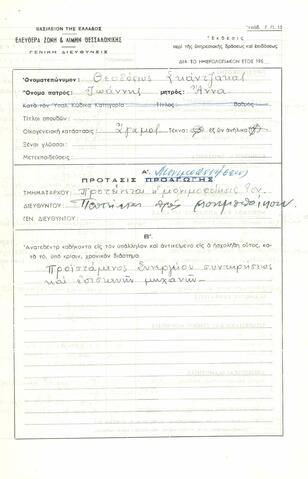 Ὑπόδ. Γ. Π. 12
ΒΑΣΙΛΕΙΟΝ ΤΗΣ ΕΛΛΑΔΟΣ
ΕΛΕΥΘΕΡΑ ΖΩΝΗ & ΛΙΜΗΝ ΘΕΣΣΑΛΟΝΙΚΗΣ
ΓΕΝΙΚΗ ΔΙΕΥΘΥΝΣΙΣ
Ἔκθεσις
περὶ τῆς ὑπηρεσιακῆς δράσεως καὶ ἐπιδόσεως
ΔΙΑ ΤΟ ΗΜΕΡΟΛΟΓΙΑΚΟΝ ΕΤΟΣ 195
Ὀνοματεπώνυμον: Θεοδόσιος
Ὄνομα πατρός: Ἰωάννης μητρός: Ἄννα
Κατὰ τὸν Ὑπαλ. Κώδικα Κατηγορία Τίτλος Βαθμὸς
Τίτλοι σπουδῶν:
Οἰκογενειακὴ κατάστασις: Ἄγαμος Τέκνα ἐξ ὧν ἀνήλικα
Ξέναι γλῶσσαι:
Μετεκπαιδεύσεις:
Α'. Μονιμοποιήσεως
ΠΡΟΤΑΣΙΣ ΠΡΟΑΓΩΓΗΣ
ΤΜΗΜΑΤΑΡΧΟΥ: Προτείνεται ἡ μονιμοποίησίς του.
ΔΙΕΥΘΥΝΤΟΥ: πρὸς μονιμοποίησιν
ΓΕΝ. ΔΙΕΥΘΥΝΤΟΥ:
Β'.
Ἀνατεθέντα καθήκοντα εἰς τὸν ὑπάλληλον καὶ ἀντικείμενα εἰς ἃ ἠσχολήθη οὗτος, κα-
τὰ τό, ὑπὸ κρίσιν, χρονικὸν διάστημα.
Προϊστάμενος συνεργίου συντηρήσεως
καὶ ἐπισκευῆς μηχανῶν